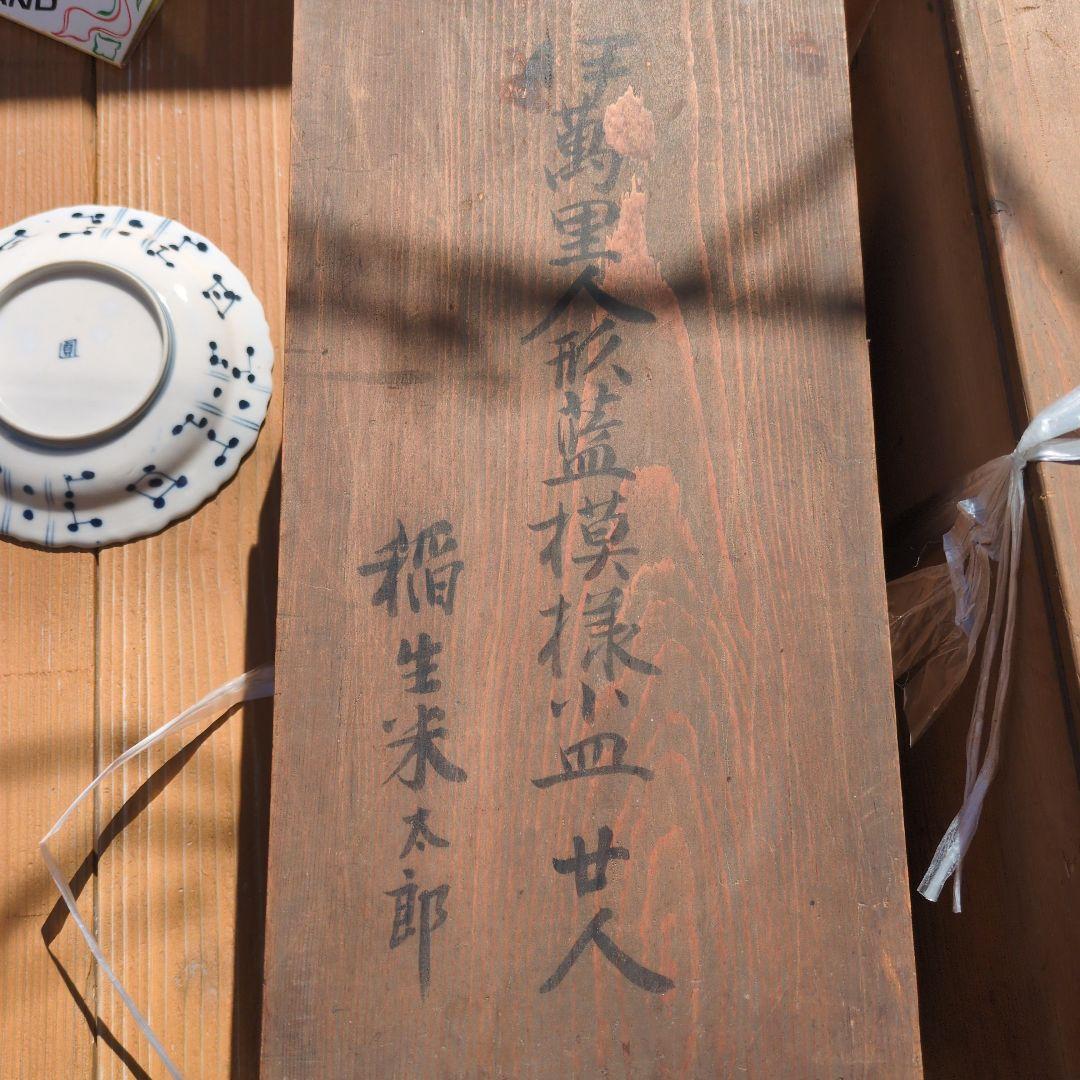 伊萬里人形藍模様小皿 廿人
稲生米太郎